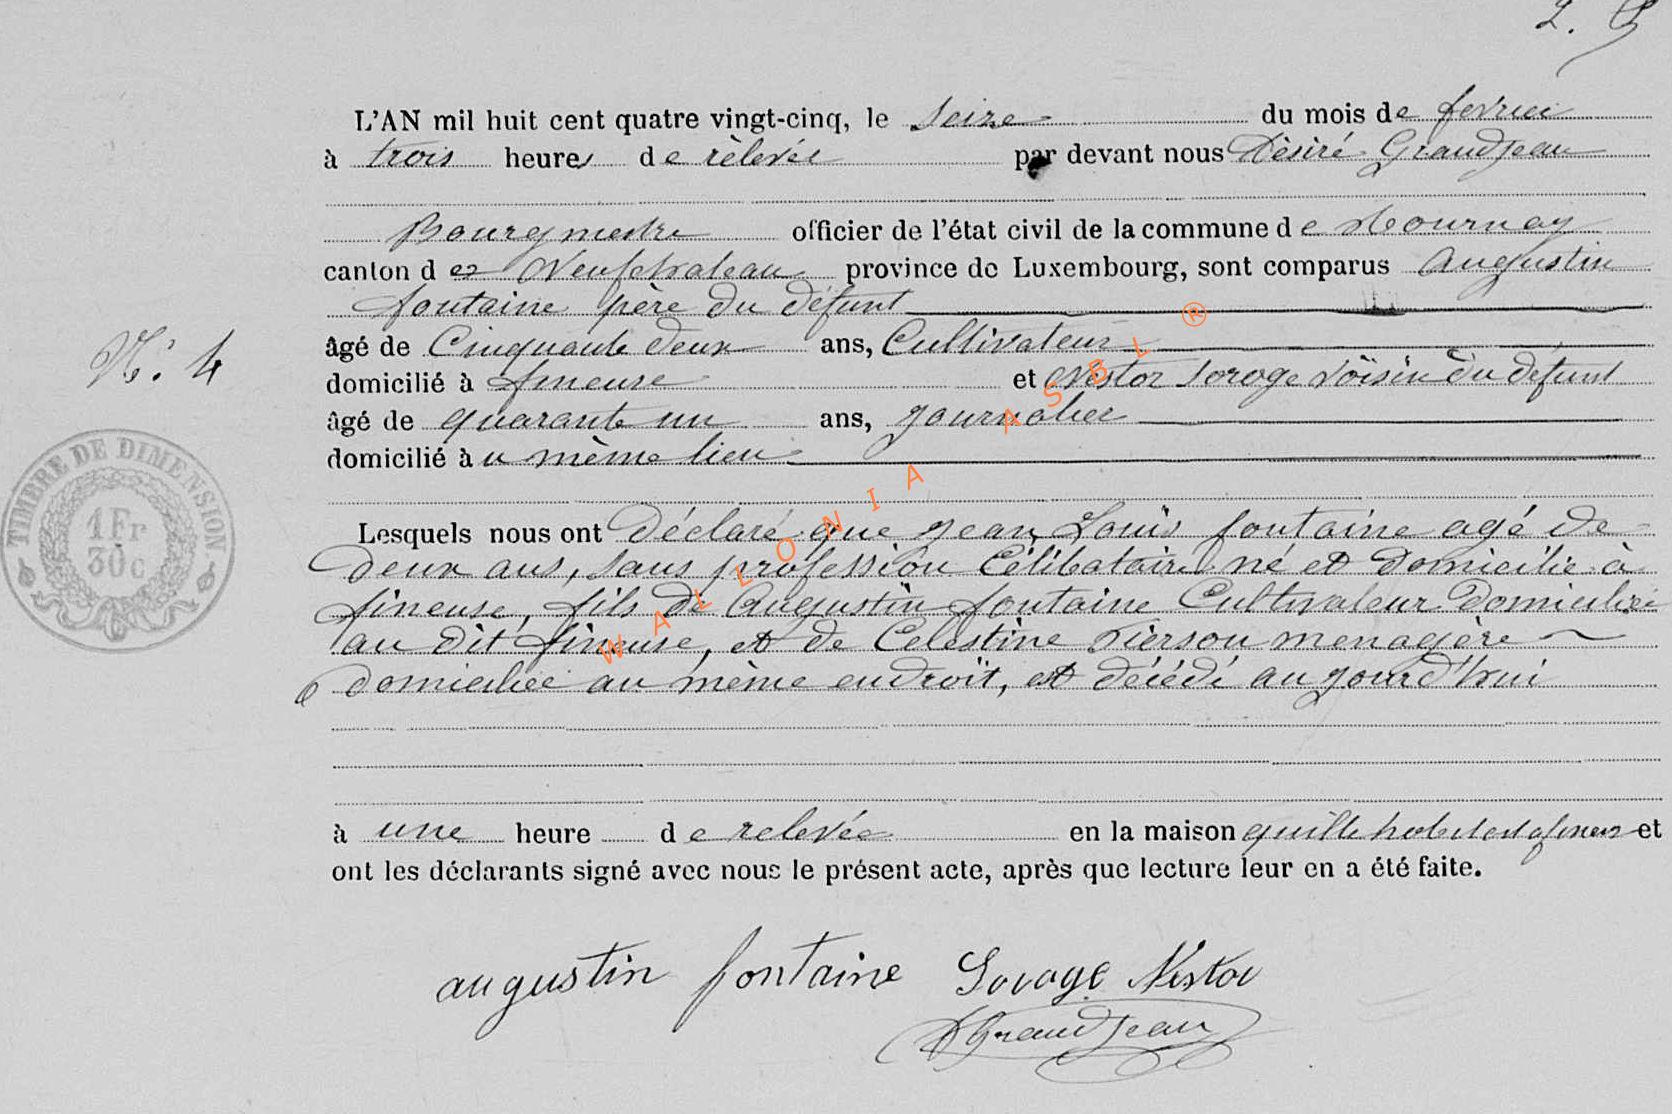 2.
L'AN mil huit cent quatre vingt-cinq, le seize du mois de fevrier
à trois heures de rèlevée par devant nous Dèsiré Grandjean
Bourgmestre officier de l'état civil de la commune de Tournay
canton de Neufchateau province de Luxembourg, sont comparus Augustin
fontaine père du défunt
âgé de Cinquante deux ans, Cultivateur
N° 4
domicilié à fineuse et Nestor Sovage voisin du défunt
âgé de quarante un ans, journalier
domicilié à u mème lieu
TIMBRE DE DIMENSION
1 Fr
30 C
Lesquels nous ont déclaré que jean Louis fontaine agé de
deux ans, sans profession Célibataire né et domicilie à
fineuse, fils de Augustin fontaine Cultivateur domicilié
au dit fineuse, et de Celestine Pierson menagère
domiciliée au mème endroit, est décédé au jourd'hui
à une heure de relevée en la maison et
ont les déclarants signé avec nous le présent acte, après que lecture leur en a été faite.
augustin fontaine Sovage Nestor
D Grandjean
WALLONIA ASBL ®